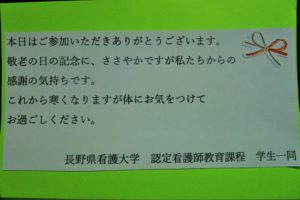 本日はご参加いただきありがとうございます。
敬老の日の記念に、ささやかですが私たちからの
感謝の気持ちです。
これから寒くなりますが体にお気をつけて
お過ごしください。
長野県看護大学　認定看護師教育課程　学生一同